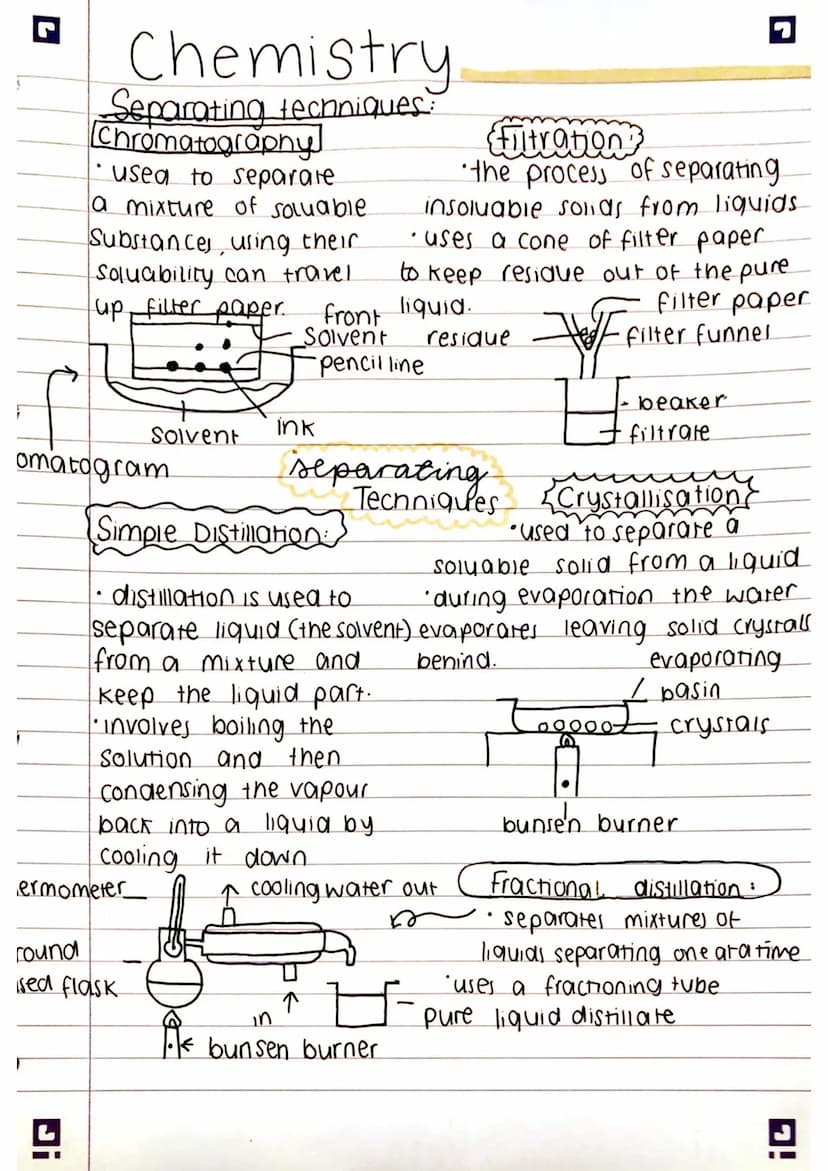 Chemistry
Separating techniques:
Chromatography
• used to separate
a mixture of soluable
substances, using their
soluability can travel
up filter paper.
front
Solvent
pencil line
ink
Solvent
omatogram
Filtration:
• the process of separating
insoluable solids from liquids
• uses a cone of filter paper
to keep residue out of the pure
liquid.
filter paper
residue
filter funnel
beaker
filtrate
separating
Techniques
Simple Distillation:
• distillation is used to
separate liquid (the solvent)
from a mixture and
keep the liquid part.
• involves boiling the
solution and then
condensing the vapour
back into a liquid by
cooling it down
ermometer
cooling water out
round
sed flask
in
bunsen burner
pure liquid distillate
Crystallisation
• used to separate a
soluable solid from a liquid
• during evaporation the water
evaporates leaving solid crystals
behind.
evaporating
basin
crystals
bunsen burner
Fractional distillation:
• separates mixtures of
liquids separating one at a time
• uses a fractioning tube